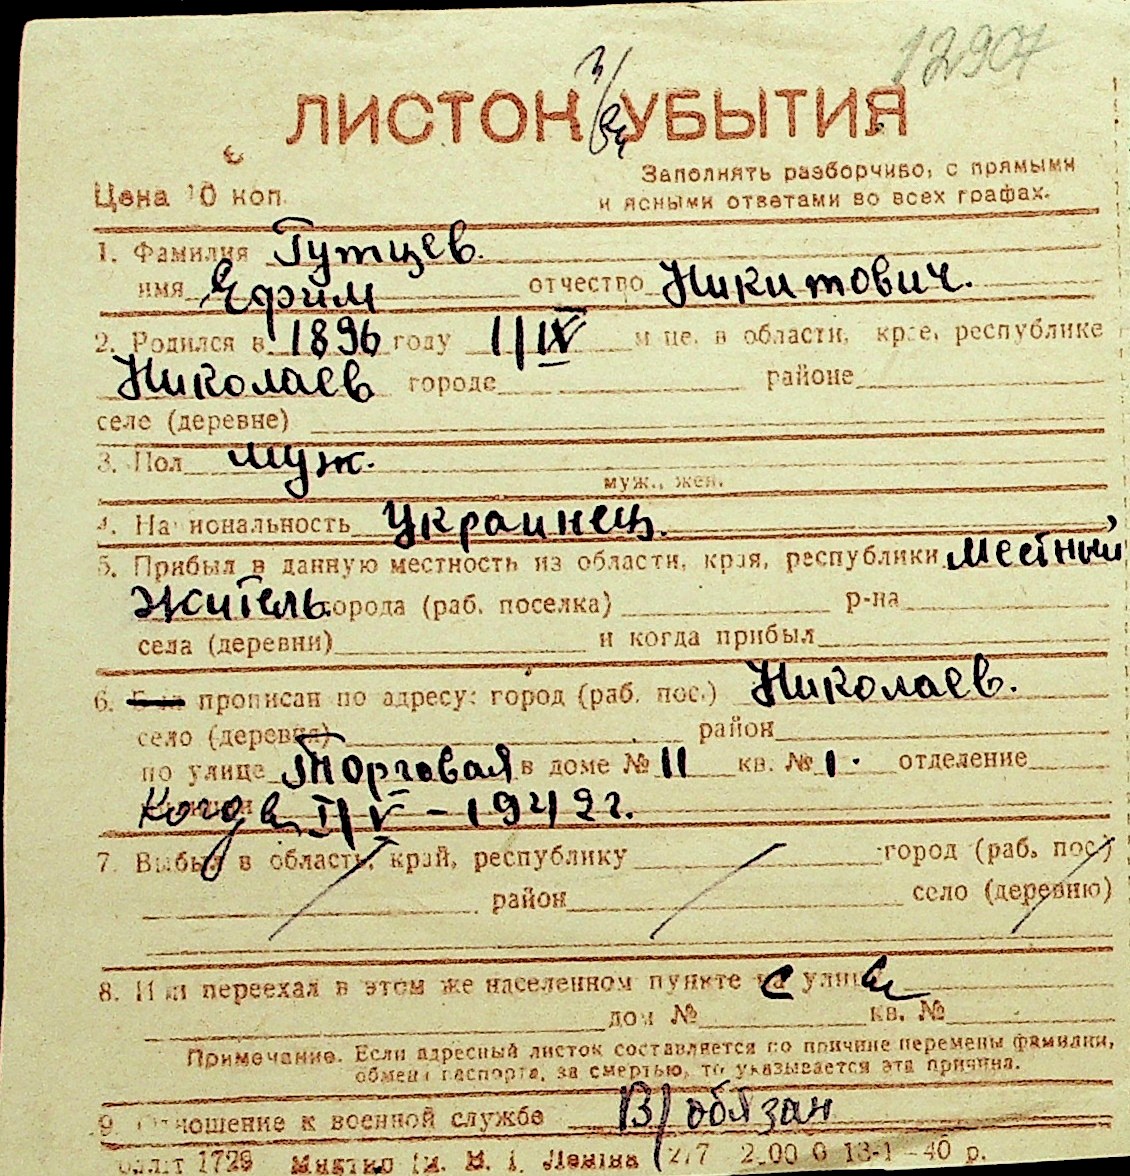 12907
ЛИСТОК УБЫТИЯ
Цена 10 коп.
Заполнять разборчиво, с прямыми
и ясными ответами во всех графах.
1. Фамилия Гутцев.
имя Ефим отчество Никитович.
2. Родился в 1896 году 1/IV м-це, в области, крае, республике
Николаев городе районе
селе (деревне)
3. Пол муж.
муж., жен.
4. Национальность Украинец.
5. Прибыл в данную местность из области, края, республики местный
житель города (раб. поселка) р-на
села (деревни) и когда прибыл
6. прописан по адресу: город (раб. пос.) Николаев.
село (деревня) район
по улице Торговая в доме № 11 кв. № 1. отделение
Когда I/V - 1942 г.
7. Выбыл в область, край, республику город (раб. пос.)
район село (деревню)
8. Или переехал в этом же населенном пункте улице
дом № кв. №
Примечание. Если адресный листок составляется по причине перемены фамилии,
обмена паспорта, за смертью, то указывается эта причина.
9. Отношение к военной службе В/обязан
1729 Ленина 40 р.